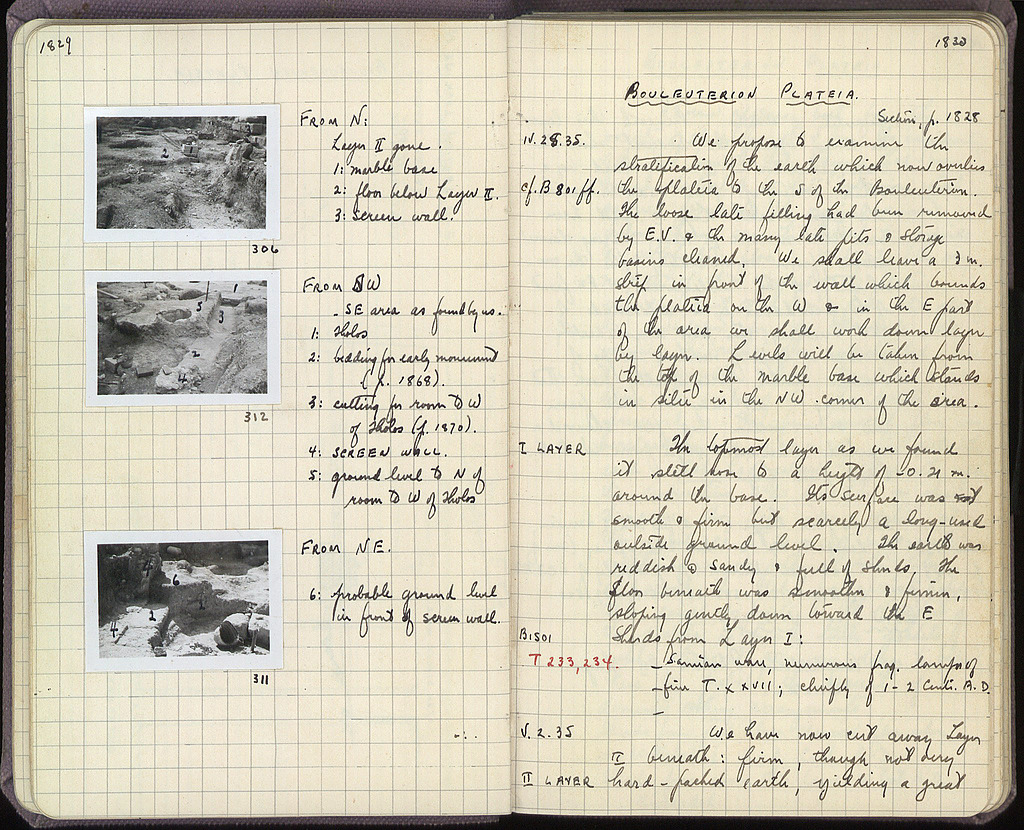 1829
FROM N:
Layer II gone.
1: marble base
2: floor below Layer II.
3: screen wall.
306
FROM SW
- SE area as found by us.
1: Tholos
2: bedding for early monument
(p. 1868).
3: cutting for room to W
of Tholos (p. 1870).
4: SCREEN WALL.
5: ground level to N of
room to W of Tholos
312
FROM NE.
6: probable ground level
in front of screen wall.
311
1830
BOULEUTERION PLATEIA.
Section, p. 1828
IV.28.35. We propose to examine the
stratification of the earth which now overlies
cf. B 801 ff. the plateia to the S of the Bouleuterion.
The loose late filling had been removed
by E.V. & the many late pits & storage
basins cleaned. We shall leave a 3 m.
strip in front of the wall which bounds
the plateia on the W & in the E part
of the area we shall work down layer
by layer. Levels will be taken from
the top of the marble base which stands
in situ in the NW corner of the area.
I LAYER The topmost layer as we found
it still rose to a height of -0.21 m.
around the base. Its surface was
smooth & firm but scarcely a long-used
outside ground level. The earth was
reddish & sandy & full of sherds. The
floor beneath was smoother & firmer,
sloping gently down toward the E
B1501 Sherds from Layer I:
T 233, 234. - Samian ware, numerous frag. lamps of
- fine T. XXVII; chiefly of 1-2 Cents. A.D.
V.2.35 We have now cut away Layer
II beneath: firm, though not very
II LAYER hard-packed earth, yielding a great